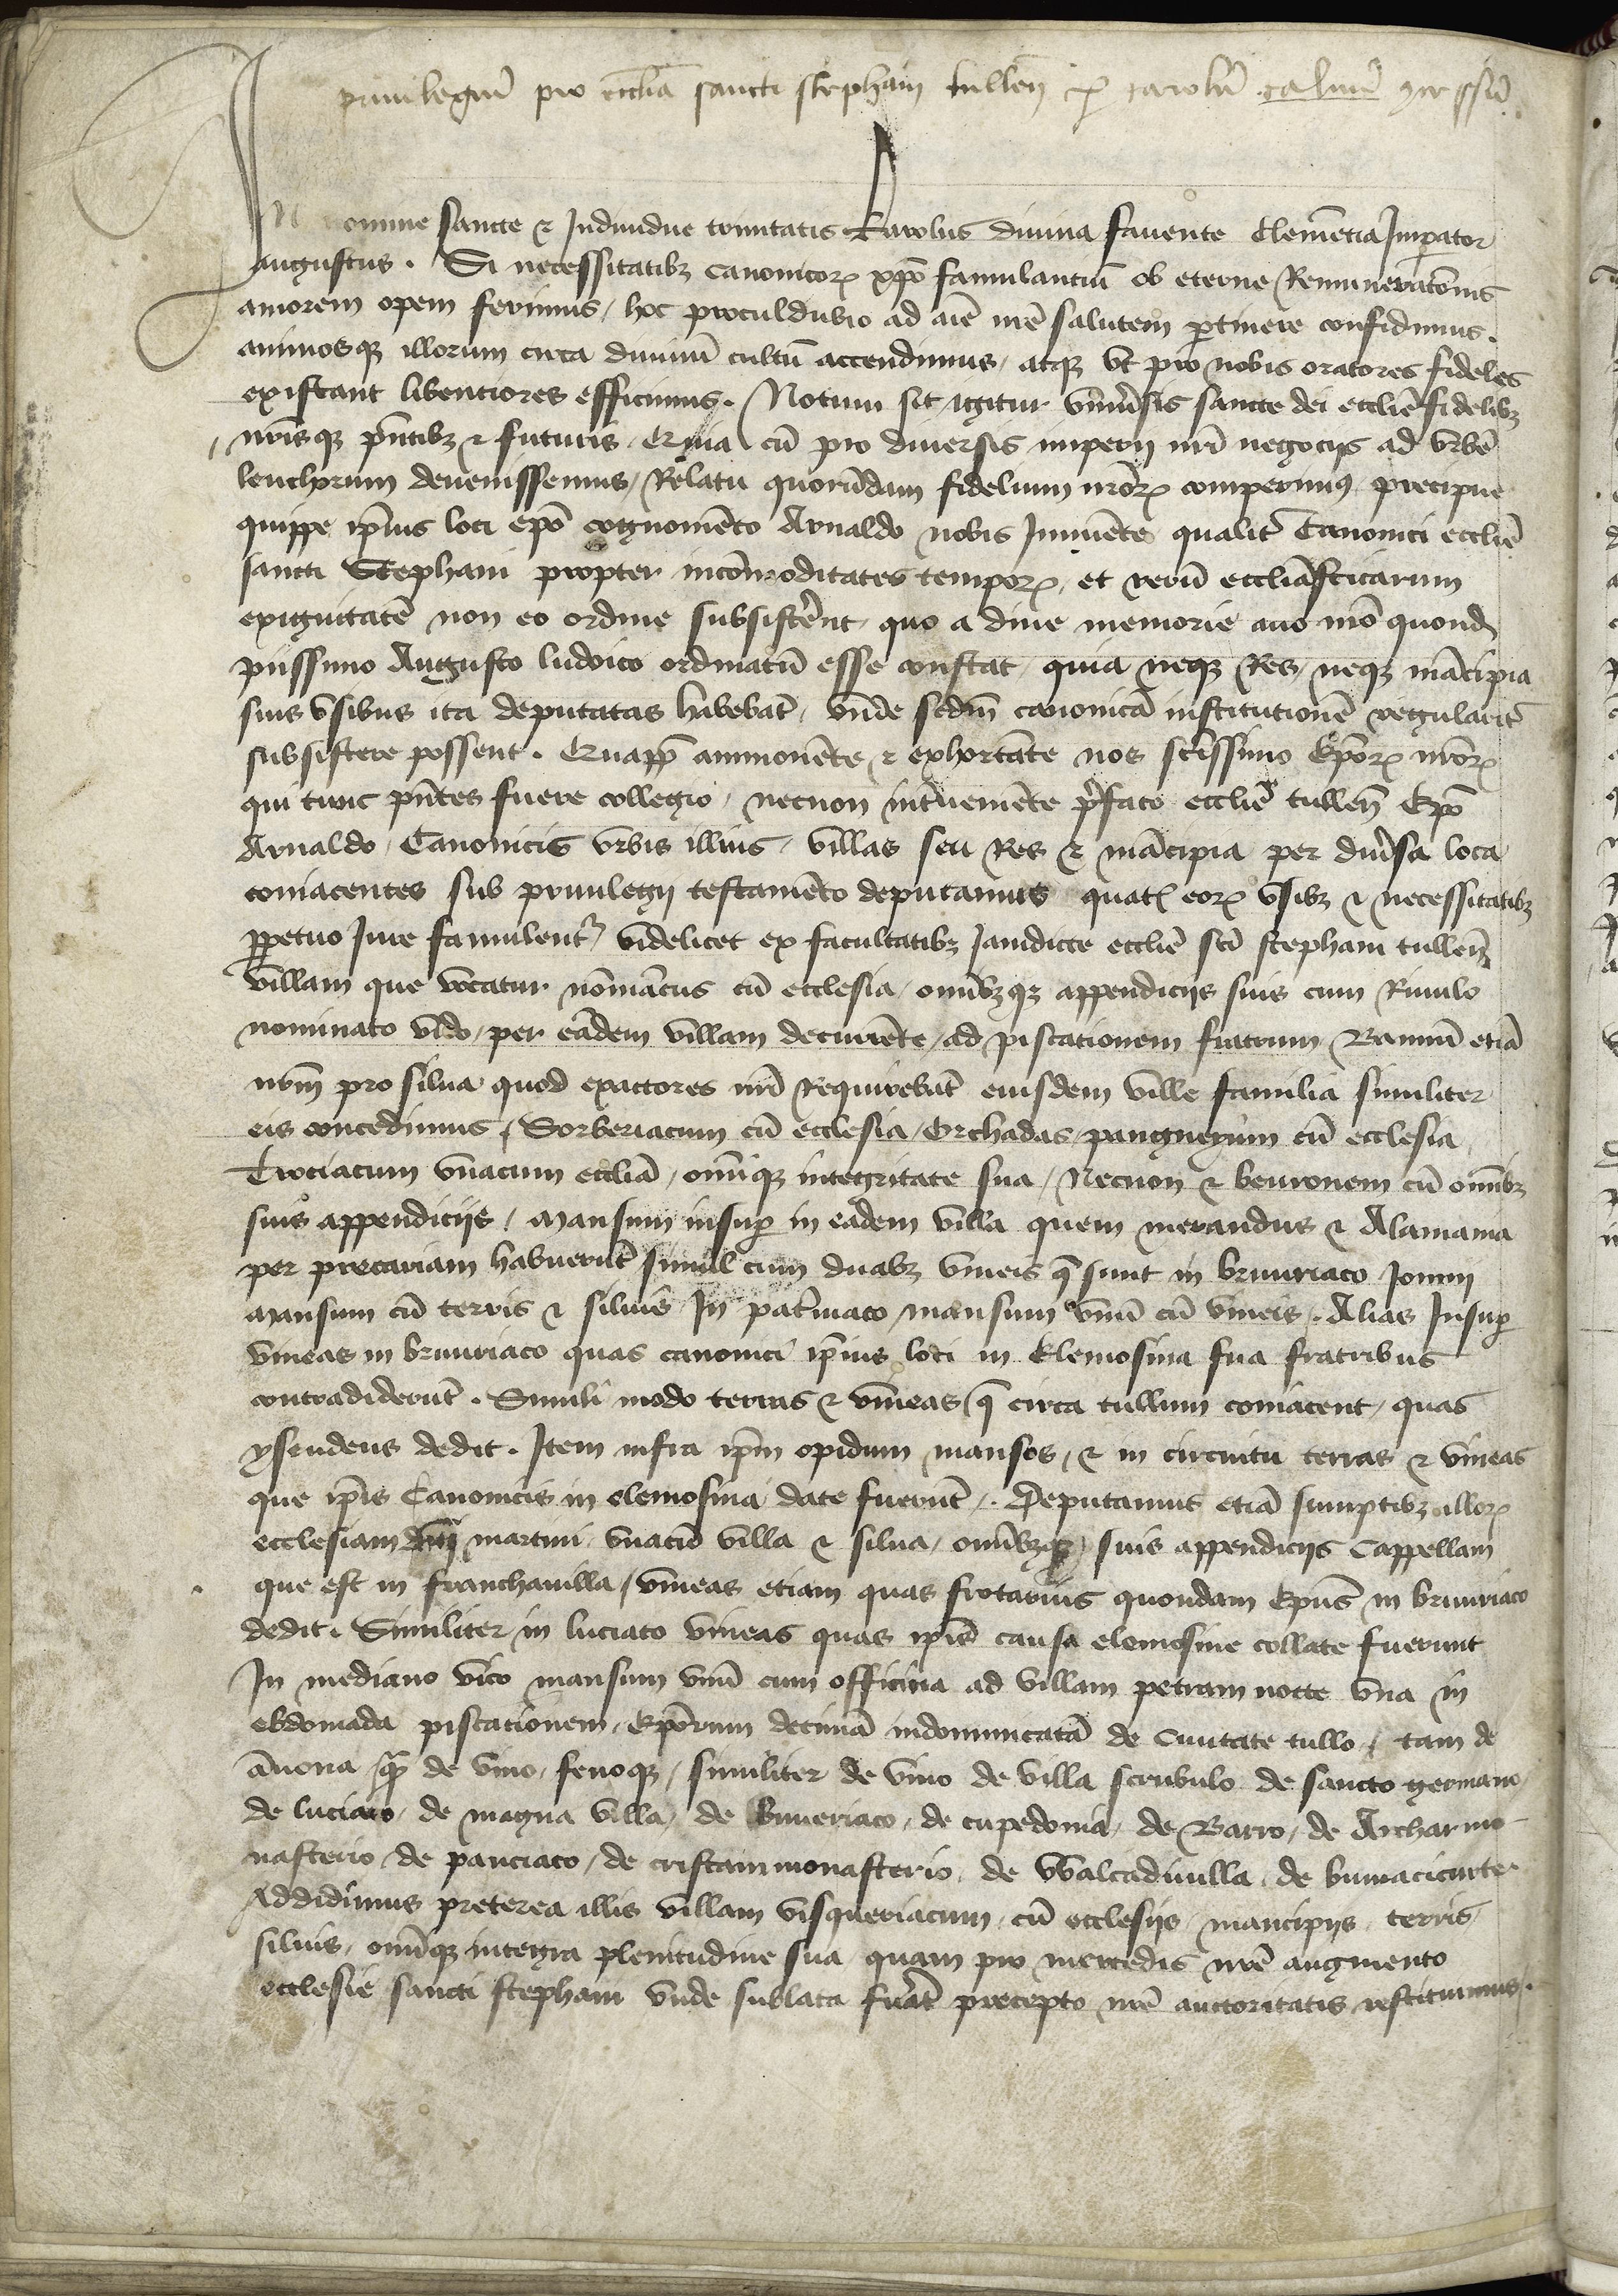 priuilegiũ pro eccliã sancti stephani tullen̄ ꝑ carolũ caluũ ꝯcessũ.
IN nomine sancte ⁊ Indiuidue trinitatis Karolus diuina fauente Clemẽtia Imperator
augustus. Si necessitatibꝫ canonicoꝝ xpõ famulantiũ ob eterne Remuneratõnis
amorem opem ferimus, hoc proculdubio ad aiẽ nrẽ salutem ꝑtinere confidimus.
animosqꝫ illorum circa diuinũ cultũ accendimus, atqꝫ vt pro nobis oratores fideles
existant libentiores efficimus. Notum sit igitur vniũsis sancte dei ecclie fidelibꝫ
nrisqꝫ pñtibꝫ ⁊ futuris, Quia cũ pro diuersis imperij nrĩ negocijs ad vrbẽ
leuchorum deuenissemus, Relatu quorũdam fidelium nroꝝ comperimꝰ precipue
quippe ipius loci epõ cognomẽto Arnaldo nobis Innuẽte qualit̃ Canonici ecclie
sancti Stephani propter incõmoditates tempoꝝ, et rerũ eccliãsticarum
exiguitatẽ non eo ordine subsistẽrent, quo a diue memorie auo nrõ quond̃
pijssimo Augusto ludoico ordinatũ esse constat, quia neqꝫ Res, neqꝫ mãcipia
suis vsibus ita deputatas habebãt, vnde scdm̃ canonicã institutionẽ regularit̃
subsistere possent. Quapp̃ ammonẽte ⁊ exhortãte nos scĩssimo Epõꝝ nroꝝ
qui tunc pñtes fuere collegio, necnon int̃ueniẽte p̃fato ecclie tullen̄ Epõ
Arnaldo, Canonicis vrbis illius, villas seu Res ⁊ mãcipia per diũsa loca
coniacentes sub priuilegij testamẽto deputamus quatꝰ eoꝝ vsibꝫ ⁊ necessitatibꝫ
ꝑpetuo Iure famulent᷑, videlicet ex facultatibꝫ Iamdicte ecclie sc̃i stephani tullen̄
villam que vocatur nõmãcus cũ ecclesia, omĩbꝫqꝫ appendicijs suis cum Riuulo
nominato vldo, per eãdem villam decurrẽte, ad piscationem fratrum, Bannũ etiã
nrm̃ pro silua quod exactores nrĩ Requirebãt eiusdem ville familia similiter
eis concedimus, Sorberiacum cũ ecclesia, Orchadas, pangneyum cũ ecclesia
Trociacum vnacum eccliã, omĩqꝫ integritate sua, Necnon ⁊ beuronem cũ omĩbꝫ
suis appendicijs, Mansum insuꝑ in eadem villa quem merandus ⁊ Alamania
per precariam habuerũt simul cum duabꝫ vineis q̃ sunt in bruuriaco Ionin
Mansum cũ terris ⁊ siluis, In pat̃niaco mansum vnũ cũ vineis. Alias Insuꝑ
vineas in bruuriaco quas canonici ip̃ius loci in Elemosina sua fratribus
contradiderũt. Simili modo terras ⁊ vineas q̃ circa tullum coniacent, quas
ysendeus dedit. Item infra ip̃m opidum mansos, ⁊ in circuitu terras ⁊ vineas
que ip̃is Canonicis in elemosina date fuerũt. Deputamus etiã sumptibꝫ illoꝝ
ecclesiam dñi martini vnacũ villa ⁊ silua, omĩbꝫqꝫ suis appendicijs Cappellam
que est in franchauilla, vineas etiam quas frotarius quondam Epũs in bruuriaco
dedit. Similiter in luciaco vineas quas ip̃is causa elemosine collate fuerunt
In mediano vico mansum vnũ cum officina ad villam petram nocte vna in
ebdomada piscationem, Epõrum decimã indominicatã de Ciuitate tullo, tam de
ãnona q̃ de vino, fenoqꝫ, similiter de vino de villa scrubulo de sancto germano,
de luciaco, de magna villa, de bruueriaco, de cupedonia, de Barro, de Archarmo-
nasterio, de panciaco, de cristammonasterio, de walcadiuilla, de bumacicurte.
Addidimus preterea illis villam visqueriacum, cũ ecclesijs, mancipijs, terris
siluis, omĩqꝫ integra plenitudine sua quam pro mercedis nrẽ augmento
ecclesie sancti stephani vnde sublata fuẽãt precepto nrẽ auctoritatis restituimus.